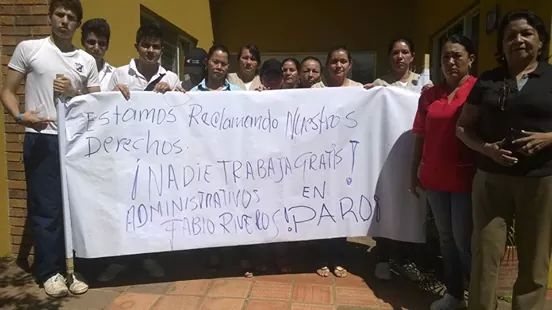 Estamos Reclamando Nuestros
Derechos.
¡NADIE TRABAJA GRATIS!
ADMINISTRATIVOS EN
FABIO RIVEROS ¡PARO!